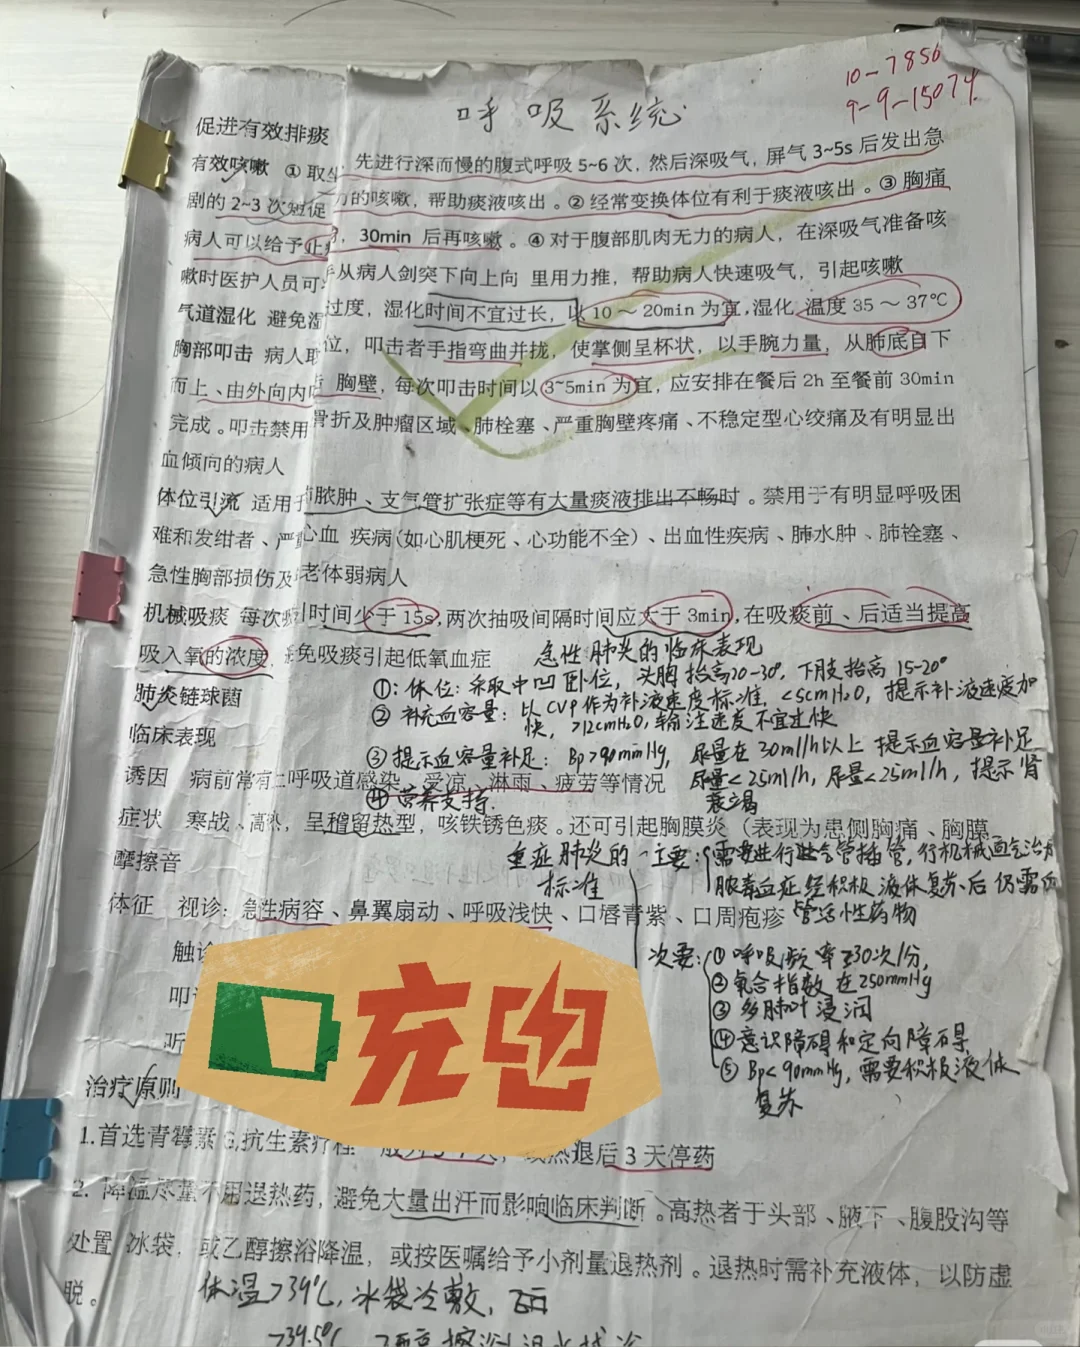 呼吸系统
10-7856
9-9-15074
促进有效排痰
有效咳嗽 ①取坐 先进行深而慢的腹式呼吸5~6次，然后深吸气，屏气3~5s后发出急
剧的2~3次短促 力的咳嗽，帮助痰液咳出。②经常变换体位有利于痰液咳出。③胸痛
病人可以给予止 ，30min后再咳嗽。④对于腹部肌肉无力的病人，在深吸气准备咳
嗽时医护人员可 手从病人剑突下向上向 里用力推，帮助病人快速吸气，引起咳嗽
气道湿化 避免湿 过度，湿化时间不宜过长，以10～20min为宜,湿化 温度35～37℃
胸部叩击 病人取 位，叩击者手指弯曲并拢，使掌侧呈杯状，以手腕力量，从肺底自下
而上、由外向内叩 胸壁，每次叩击时间以3~5min为宜，应安排在餐后2h至餐前30min
完成。叩击禁用 骨折及肿瘤区域、肺栓塞、严重胸壁疼痛、不稳定型心绞痛及有明显出
血倾向的病人
体位引流 适用于 肺脓肿、支气管扩张症等有大量痰液排出不畅时。禁用于有明显呼吸困
难和发绀者、严重 心血 疾病(如心肌梗死、心功能不全)、出血性疾病、肺水肿、肺栓塞、
急性胸部损伤及 老体弱病人
机械吸痰 每次吸 时间少于15s,两次抽吸间隔时间应大于3min,在吸痰前、后适当提高
吸入氧的浓度， 免吸痰引起低氧血症
急性肺炎的临床表现
肺炎链球菌
①：体位：采取中凹卧位，头胸抬高20-30°，下肢抬高15-20°
②补充血容量：以CVP作为补液速度标准，<5cmH₂O，提示补液速度加
快，>12cmH₂O，输注速度不宜过快
临床表现
③提示血容量补足：Bp>90mmHg，尿量在30ml/h以上 提示血容量补足
尿量<25ml/h，尿量<25ml/h，提示肾
衰竭
诱因 病前常有上呼吸道感染、受凉、淋雨、疲劳等情况
④营养支持.
症状 寒战、高热，呈稽留热型，咳铁锈色痰。还可引起胸膜炎（表现为患侧胸痛、胸膜
摩擦音
重症肺炎的
标准
主要：需要进行 气管插管，行机械通气治疗
脓毒血症经积极液体复苏后仍需血
管活性药物
体征 视诊：急性病容、鼻翼扇动、呼吸浅快、口唇青紫、口周疱疹
触诊
次要：①呼吸频率≥30次/分，
②氧合指数在250mmHg
③多肺叶浸润
④意识障碍和定向障碍
⑤Bp<90mmHg，需要积极液体
复苏
叩
听
充电
治疗原则
1.首选青霉素G,抗生素疗程 热退后3天停药
2. 降温尽量不用退热药，避免大量出汗而影响临床判断。高热者于头部、腋下、腹股沟等
处置 冰袋，或乙醇擦浴降温，或按医嘱给予小剂量退热剂。退热时需补充液体，以防虚
脱。
体温>39℃，冰袋冷敷，
>39.5℃